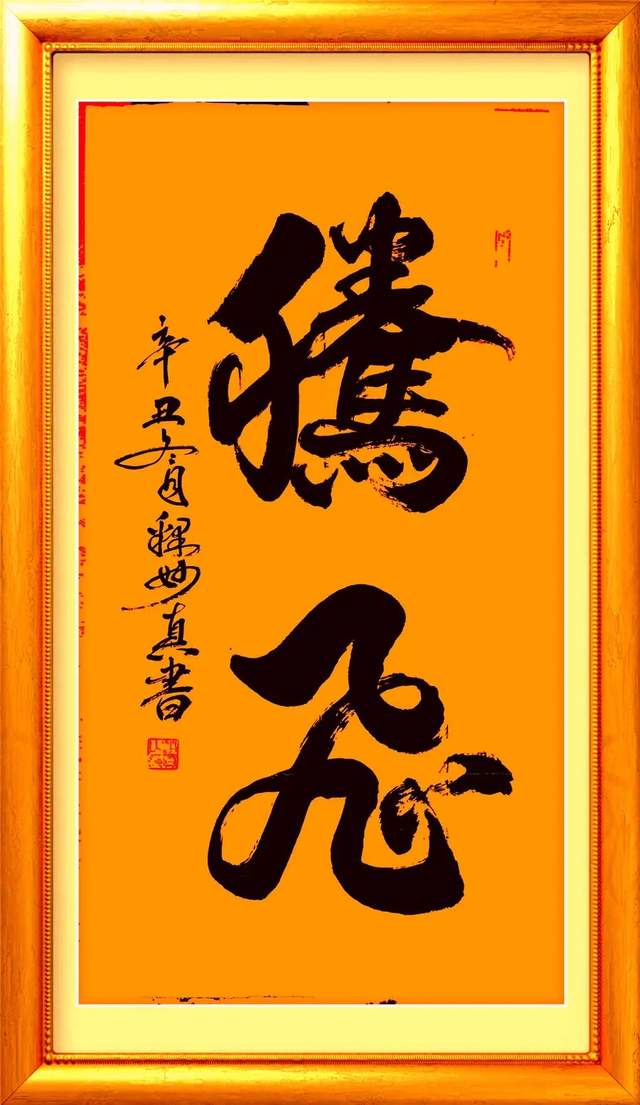 騰飛
辛丑冬月釋妙真書